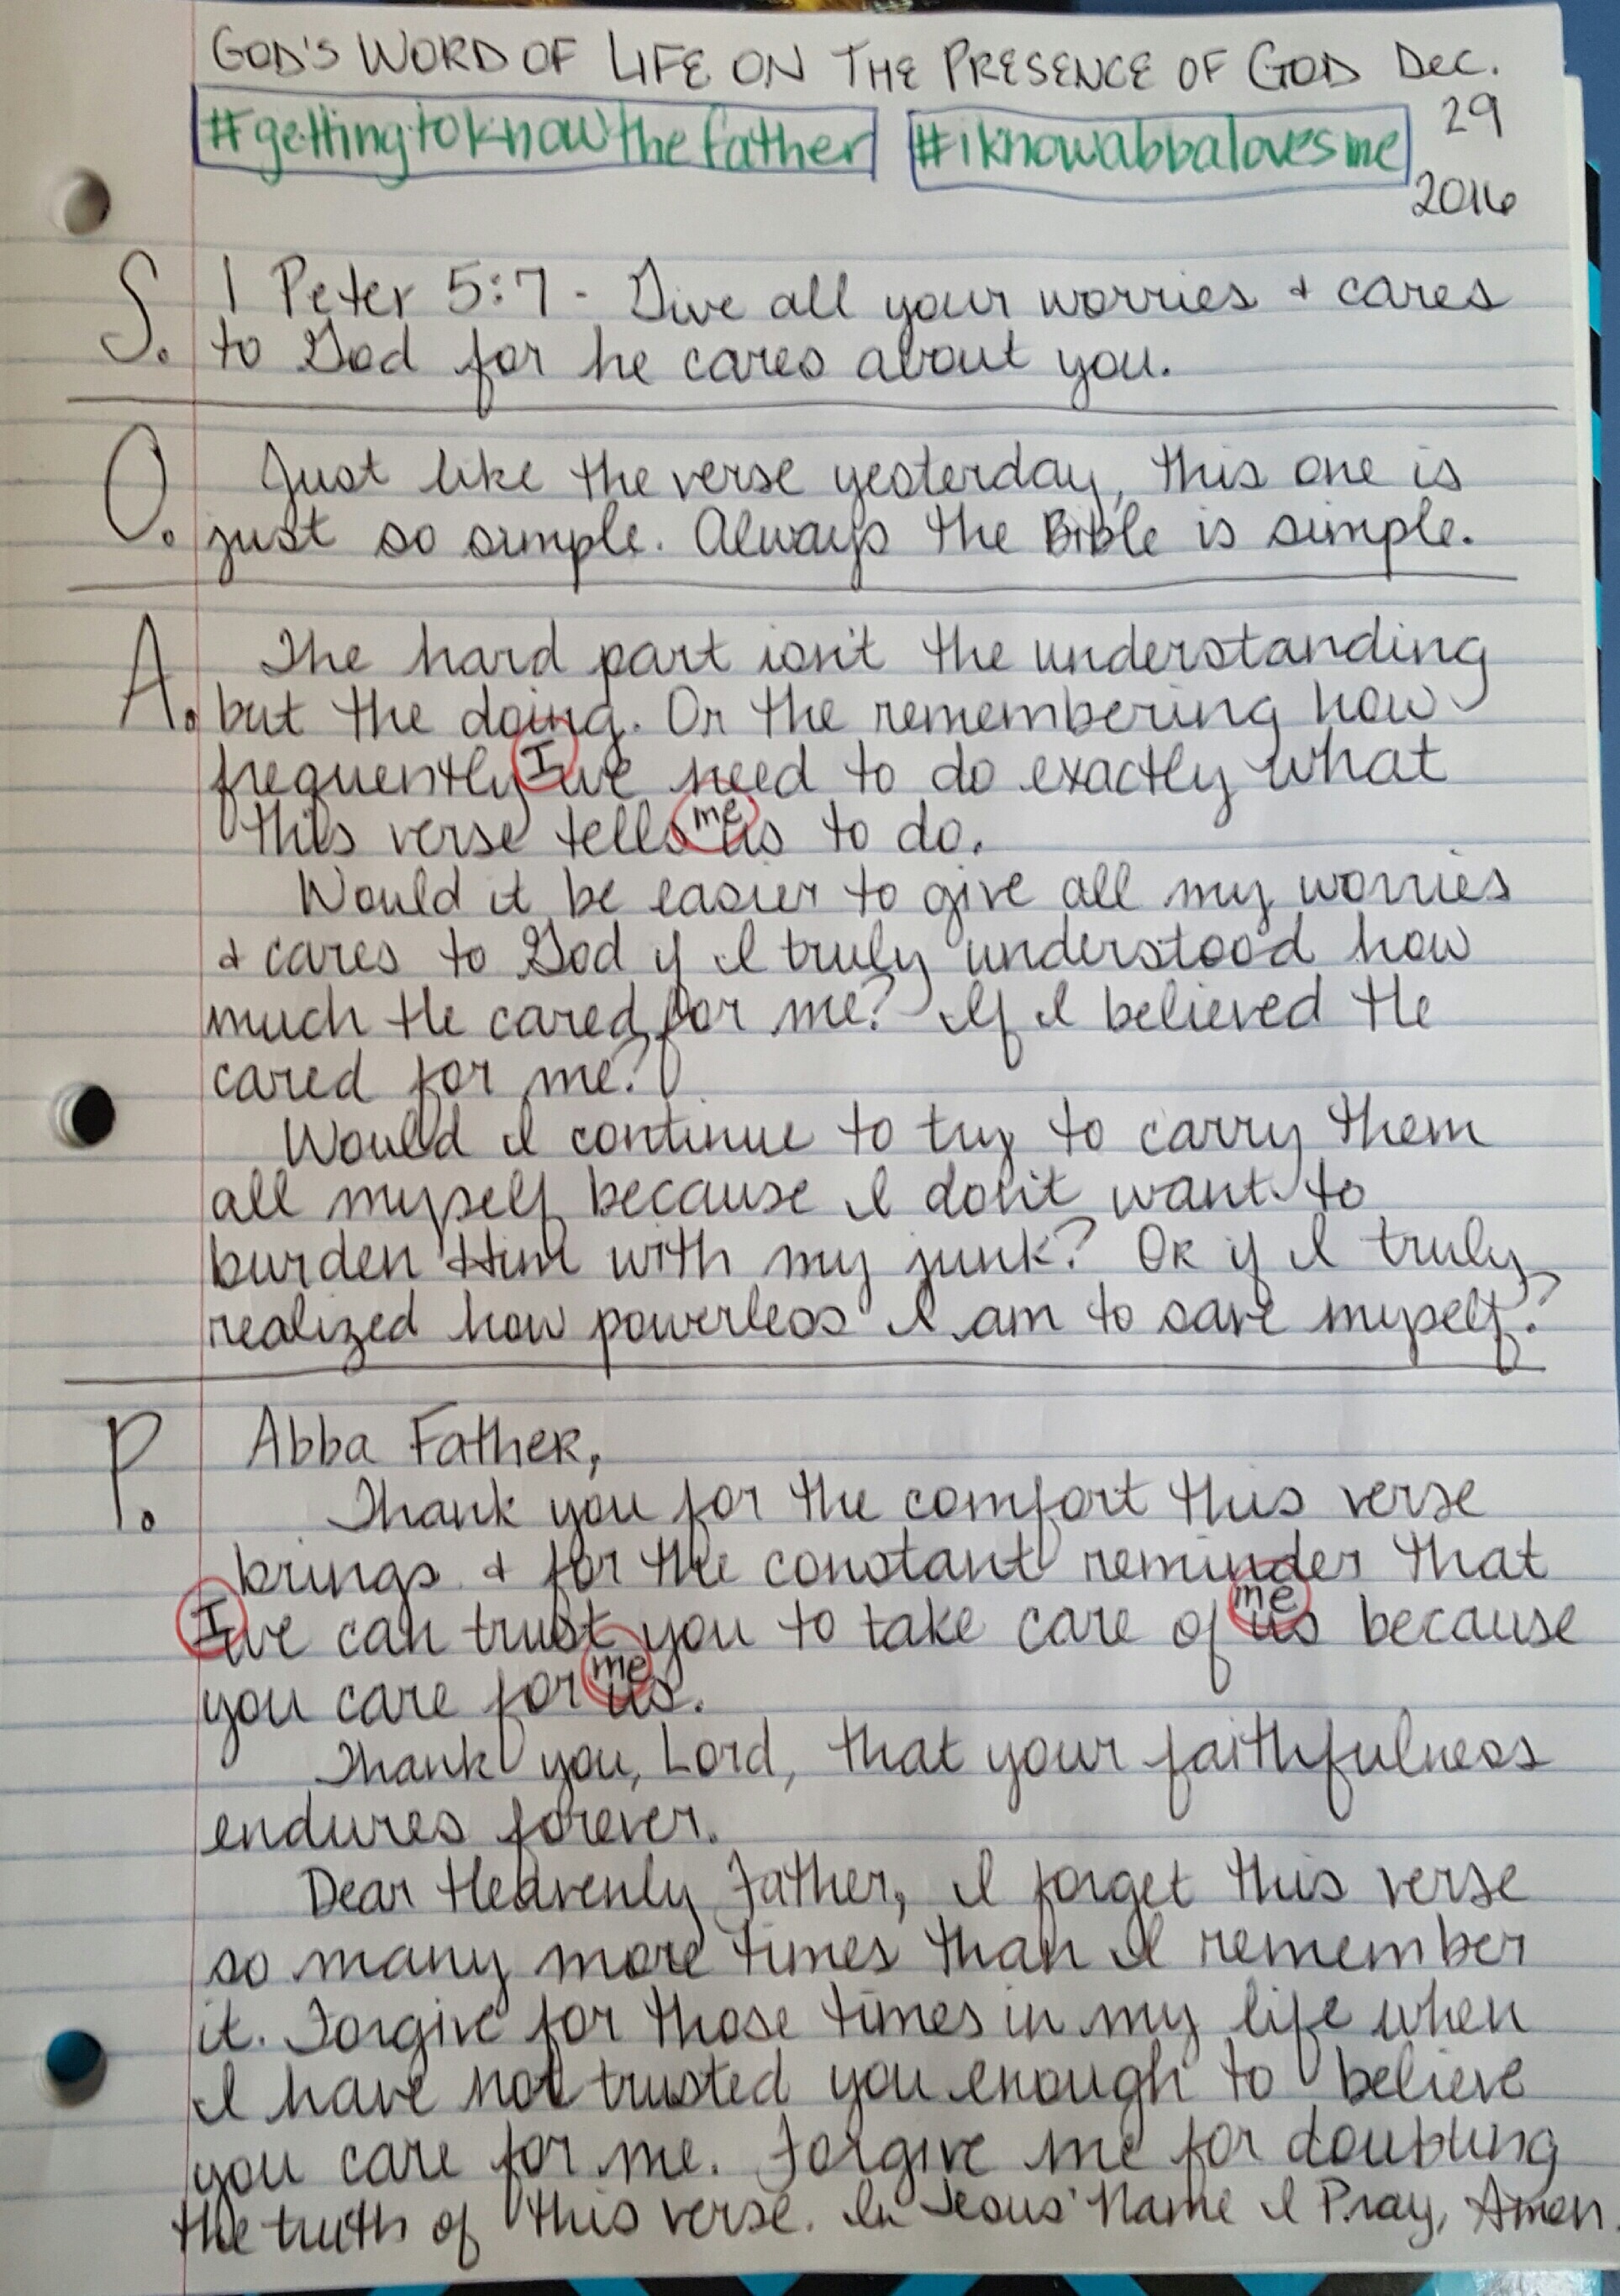 GOD'S WORD OF LIFE ON THE PRESENCE OF GOD Dec.
29
2016
#gettingtoknowthefather #iknowabbalovesme
S. 1 Peter 5:7 - Give all your worries & cares
to God for he cares about you.
O. Just like the verse yesterday, this one is
just so simple. Always the Bible is simple.
A. The hard part isn't the understanding
but the doing. Or the remembering how
frequently I we need to do exactly what
this verse tells me us to do.
Would it be easier to give all my worries
& cares to God if I truly understood how
much He cared for me? If I believed He
cared for me?
Would I continue to try to carry them
all myself because I don't want to
burden Him with my junk? OR if I truly
realized how powerless I am to save myself?
P. Abba Father,
Thank you for the comfort this verse
brings & for the constant reminder that
I we can trust you to take care of me us because
you care for me us.
Thank you, Lord, that your faithfulness
endures forever.
Dear Heavenly Father, I forget this verse
so many more times than I remember
it. Forgive for those times in my life when
I have not trusted you enough to believe
you care for me. Forgive me for doubting
the truth of this verse. In Jesus' Name I Pray, Amen.